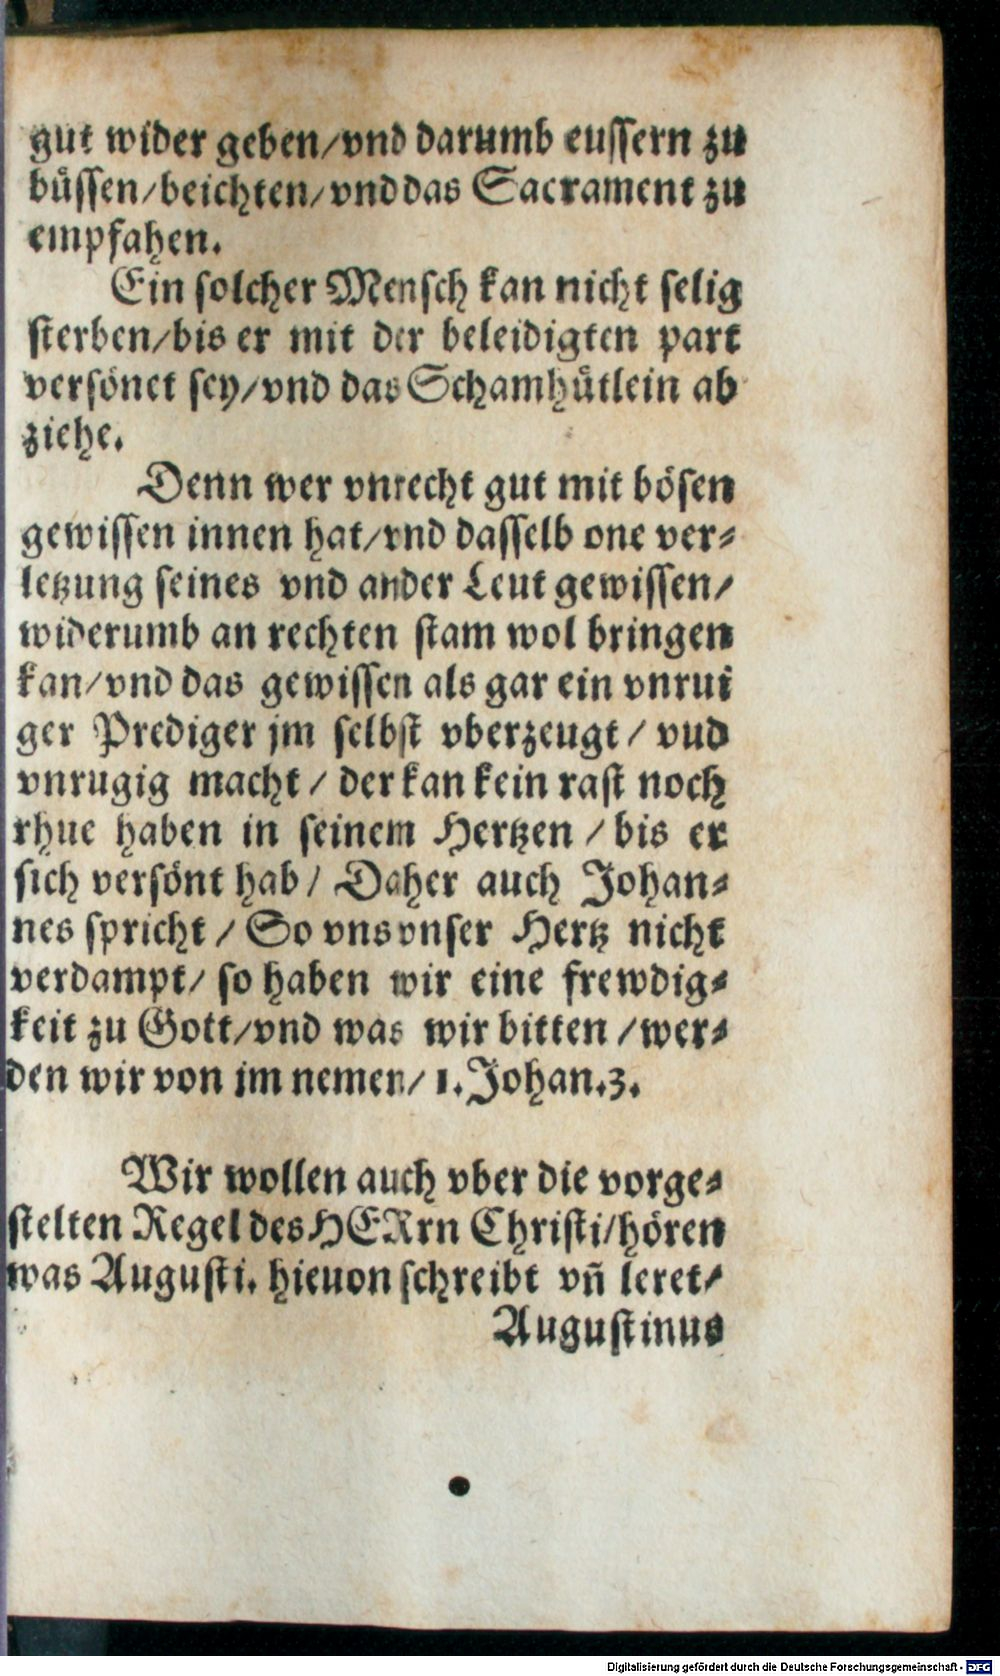 gut wider geben/vnd darumb eussern zu
büssen/beichten/vnd das Sacrament zu
empfahen.
Ein solcher Mensch kan nicht selig
sterben/bis er mit der beleidigten part
versönet sey/vnd das Schamhütlein ab
ziehe.
Denn wer vnrecht gut mit bösen
gewissen innen hat/vnd dasselb one ver-
letzung seines vnd ander Leut gewissen/
widerumb an rechten stam wol bringen
kan/vnd das gewissen als gar ein vnrui
ger Prediger jm selbst vberzeugt/ vud
vnrugig macht/ der kan kein rast noch
rhue haben in seinem Hertzen/ bis er
sich versönt hab/ Daher auch Johan-
nes spricht/ So vns vnser Hertz nicht
verdampt/ so haben wir eine frewdig-
keit zu Gott/vnd was wir bitten/wer-
den wir von jm nemen/ 1.Johan.3.
Wir wollen auch vber die vorge-
stelten Regel des HERrn Christi/hören
was Augusti. hieuon schreibt vñ leret/
Augustinus
Digitalisierung gefördert durch die Deutsche Forschungsgemeinschaft - DFG